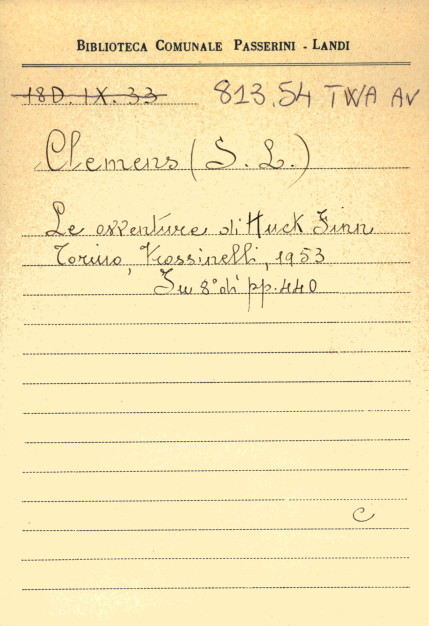 BIBLIOTECA COMUNALE PASSERINI - LANDI
18D. IX. 33 813.54 TWA AV
Clemens (S. L.)
Le avventure di Huck Finn
Torino, Frassinelli, 1953
In 8° di pp. 440
C